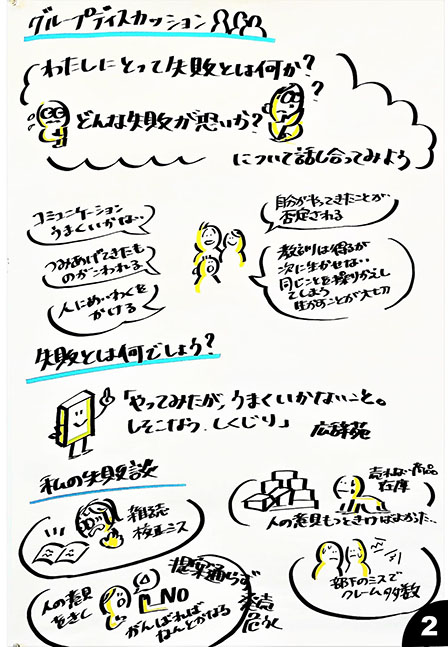 グループディスカッション
わたしにとって失敗とは何か?
どんな失敗が恐いか?
について話し合ってみよう
コミュニケーション
うまくいかな‥
つみあげてきたも
のがこわれる
人にめいわくを
かける
自分がやってきたことが
否定される
教訓は得るが
次に生かせな‥
同じことを繰りかえし
てしまう
生かすことが大切
失敗とは何でしょう?
「やってみたが、うまくいかないこと。
しそこなう、しくじり」 広辞苑
私の失敗談
雑誌
校正ミス
売れない商品
在庫
人の意見もっときけばよかった…
人の意見
をきく
提案通らず
NO
がんばれば
なんとかなる
危うく
部下のミスで
クレーム多数
2